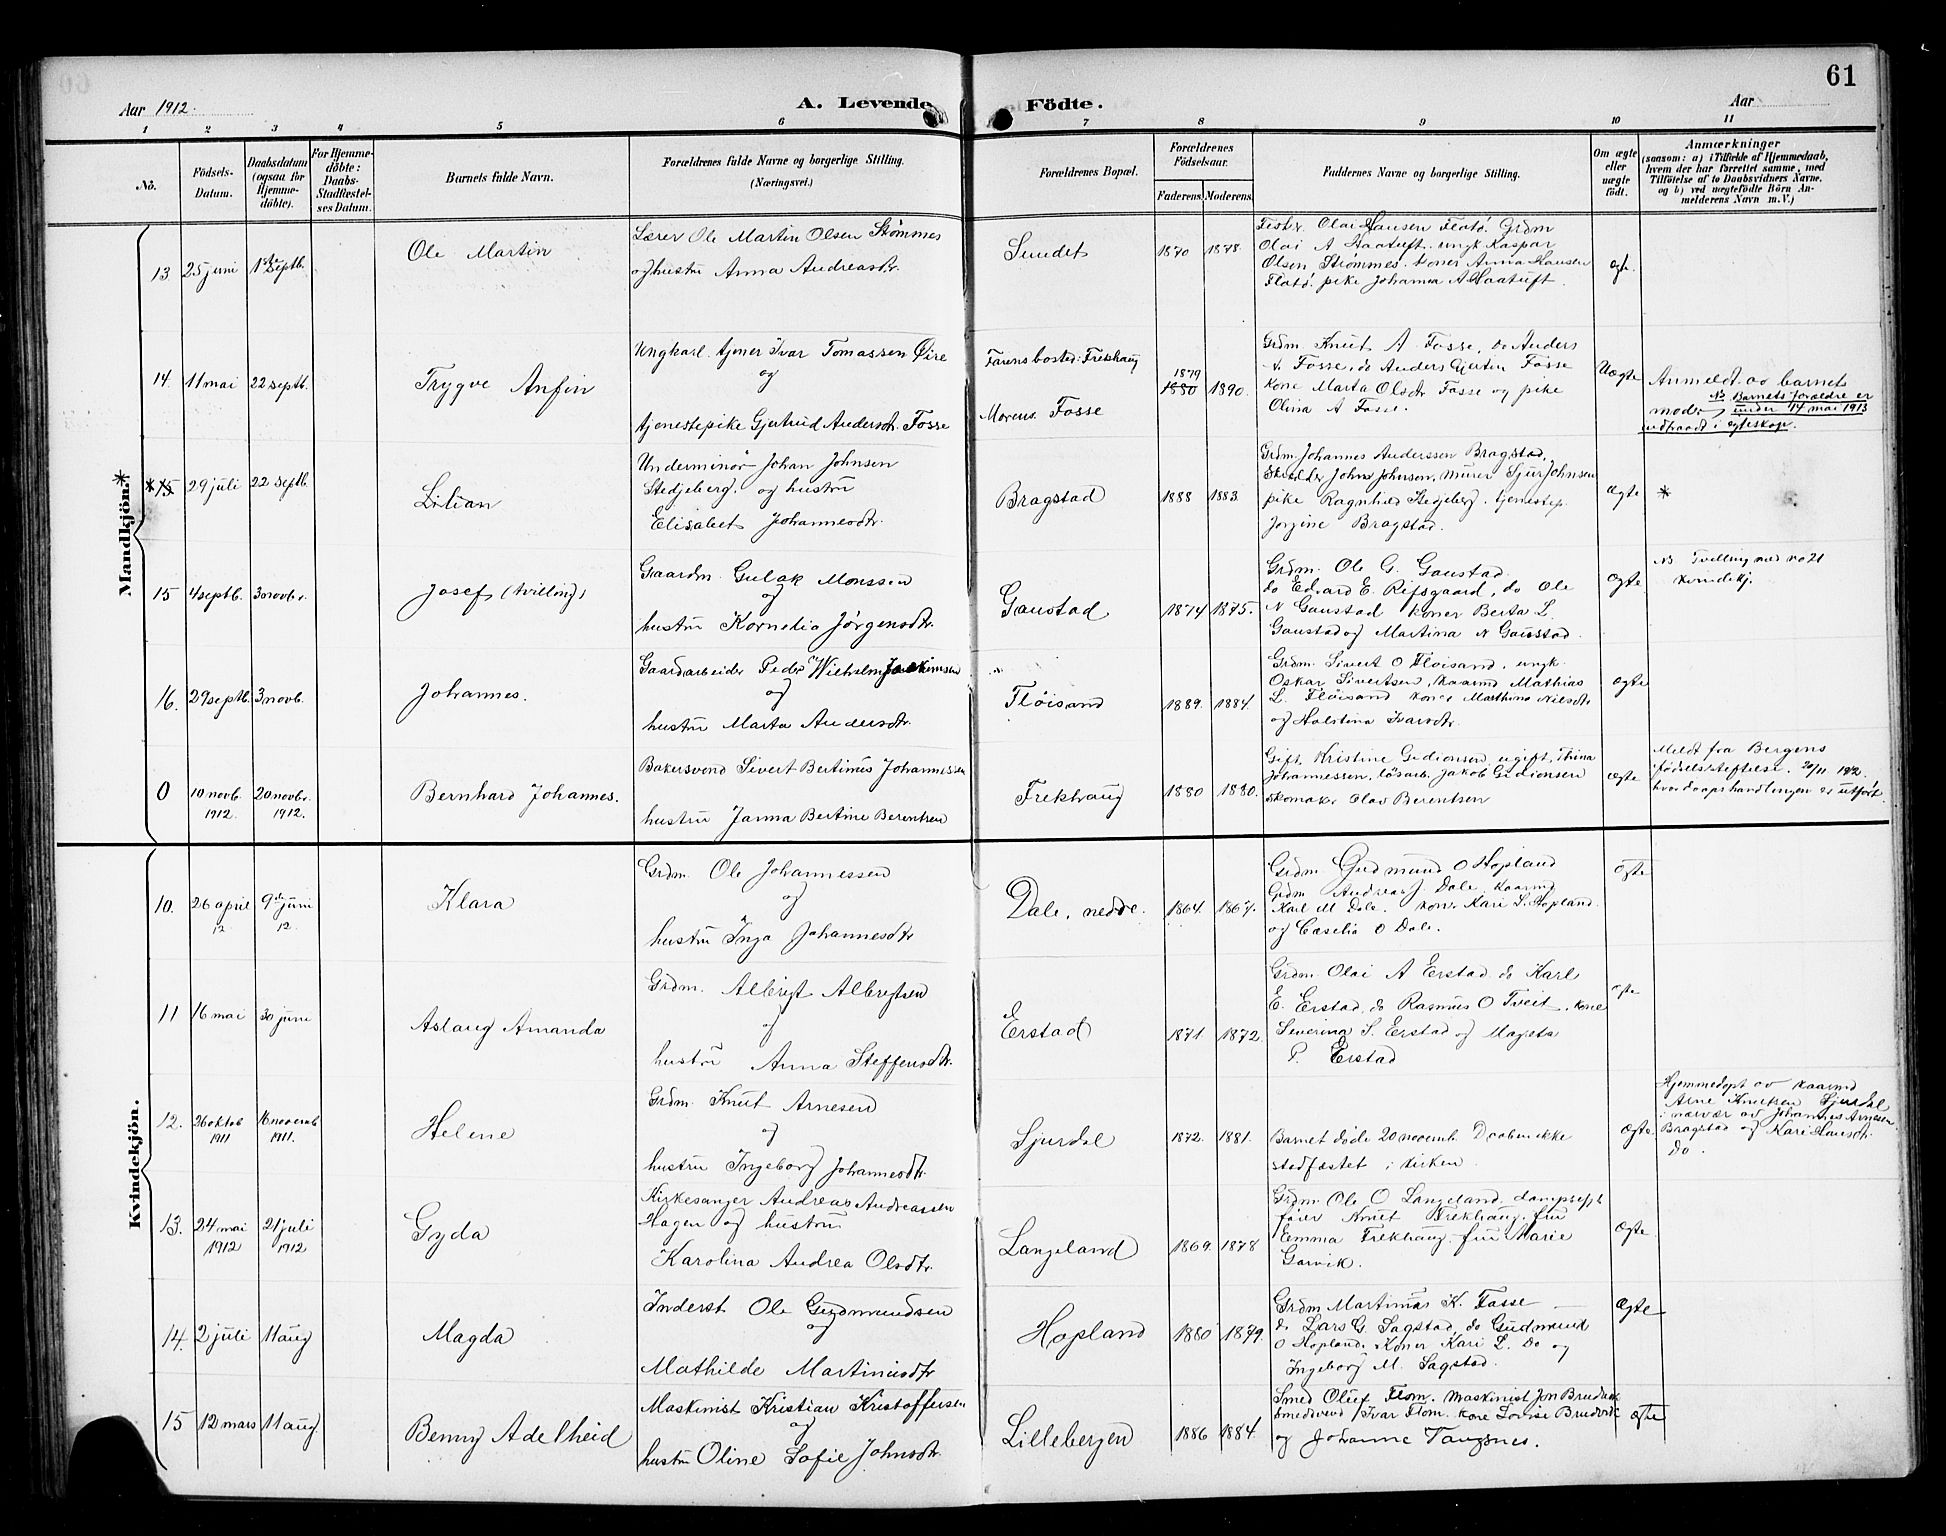 61
Aar 1912.
A. Levende Födte.
Aar
1 2 3 4 5 6 7 8 9 10 11
No.
Födsels-Datum.
Daabsdatum (ogsaa for Hjemmedöbte).
For Hjemmedöbte: Daabs-Stadfæstelses Datum.
Barnets fulde Navn.
Forældrenes fulde Navne og borgerlige Stilling. (Næringsvei.)
Forældrenes Bopæl.
Forældrenes Födselsaar.
Faderens. Moderens.
Faddernes Navne og borgerlige Stilling.
Om ægte eller uægte födt.
Anmærkninger
(saasom: a) i Tilfælde af Hjemmedaab,
hvem der har forrettet samme, med
Tilföielse af to Daabsvidners Navne,
og b) ved uægtefödte Börn Anmelderens Navn m. V.)
Mandkjön.
13 25 juni 1ste septb.
Ole Martin
Lærer Ole Martin Olsen Stømmes
og hustru Anna Andreasdtr.
Sundet
1870 1878
Olai Hansen Flatø. Grdm
Olai A Haatuft. ungk Kaspar
Olsen Strømmes. koner Anna Hansen
Flatø. pike Johanna A Haatuft.
ægte.
14. 11 mai 22 septb.
Trygve Anfin
Ungkarl. tjener Ivar Tomassen Øire
og
tjenestepike Gjertrud Andersdtr. Fosse
Farens bosted: Frekhaug
Morens. Fosse
1879
1880 1890.
Grdm. Knut A Fosse, do Anders
A. Fosse, do Anders Gjerten Fosse
kone Marta Olsdtr Fosse og pike
Olina A Fosse.
Uægte
Anmeldt av barnets
moder
NB Barnets forældre er
under 14 mai 1913
indtraadt i egteskap.
* 15 29 juli 22 septb.
Lilian
Underminør Johan Johnsen
Stedjeberg. og hustru
Elisabet Johannesdtr.
Bragstad
1888 1883.
Grdm. Johannes Anderssen Bragstad.
Skrædder John Johnsen, murer Sjur Johnsen
pike Ragnhild Stedjeberg. tjenestep.
Jorgine Bragstad.
Ægte *
15 4 septb. 3 novbr.
Josef (tvilling)
Gaardm. Gulak Monssen
og
hustru Kornelia Jørgensdtr.
Gaustad
1874 1875.
Grdm. Ole G. Gaustad.
do Edvard E. Rifsgaard, do Ole
N Gaustad koner Berta L.
Gaustad og Martina N Gaustad.
Ægte
NB Tvilling med no 21
kvindekj.
16. 29 septb. 3 novb.
Johannes.
Gaardarbeider Peder Wilhelm Joakimsen
og
hustru Marta Andersdtr
Fløisand
1889. 1884.
Grdm. Sivert O Fløisand. ungk.
Oskar Sivertsen, kaarmd Mathias
L. Fløisand kone Marthina Nilsdtr
og Halstina Ivarsdtr.
Ægte
0 10 novb. 1912. 20 novbr. 1912.
Bernhard Johannes.
Bakersvend Sivert Bertinus Johannessen
hustru Janna Bertine Berentsen
Frekhaug
1880 1880.
Gift. Kristine Gedionsen, ugift. Thina
Johannessen, løsarb. Jakob Gedionsen
skomaker Olav Berentsen
Ægte
Meldt fra Bergens
fødselsstiftelse. 20/11 1912.
hvor daapshandlingen er utført.
Kvindekjön.
10. 26 april 12 9de juni 12.
Klara
Grdm. Ole Johannessen
og
hustru Inga Johannesdtr
Dale, nedre.
1864. 1867.
Grdm Gudmund O Hopland
Grdm Andreas J. Dale. kaarmd
Karl M Dale. kone Kari S. Hopland.
og Caselia O Dale.
Ægte
11 16 mai 30 juni
Aslaug Amanda
Grdm. Albrigt Albrigtsen
og
hustru Anna Steffensdtr.
Erstad
1871. 1872.
Grdm. Olai A Erstad do Karl
E. Erstad, do Rasmus O Tveit. kone
Severina S. Erstad og Magsta
P. Erstad
Ægte
12. 26 oktob 1911 16 novemb 1911.
Helene
Grdm. Knut Arnesen
og
hustru Ingeborg Johannesdtr.
Sjurdal
1872. 1881.
Barnet døde 20 novemb. Daaben ikke
stadfæstet i kirken.
Ægte.
Hjemmedøpt av kaarmd
Arne Knutsen Sjurdal
i nærvær av Johannes Arnesen
Bragstad og Kari Hansdtr.
Do.
13. 24 mai 1912 21 juli 1912
Gyda
Kirkesanger Andreas Andreassen
Hagen og hustru
Karolina Andrea Olsdtr.
Langeland
1869. 1878
Grdm. Ole O Langeland. dampskips
fører Knut Frekhaug. fru
Emma Frekhaug. fru Marie
Garvik.
Ægte.
14. 2 juli 11 aug
Magda
Inderst Ole Gudmundsen
og
Mathilde Martinusdtr
Hopland
1880 1879.
Grdm Martinus K. Fosse
do Lars G. Sagstad, do Gudmund
O Hopland. Koner Kari L. Do og
Ingeborg M. Sagstad.
Ægte
15 12 mars 11 aug
Benny Adelheid
Maskinist Kristian Kristoffersen
og
hustru Oline Sofie Johnsdtr.
Lillebergen
1886 1884.
Smed Oluf Flom. Maskinist Jon Brudvik
smedsvend Ivar Flom. kone Lovise Brudvik
og Johanne Tangsnes.
Ægte